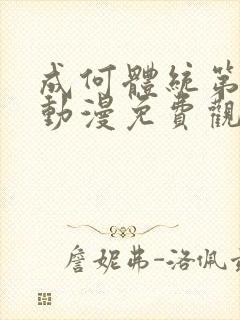 成何體統第
動漫免費觀
詹妮弗-洛佩